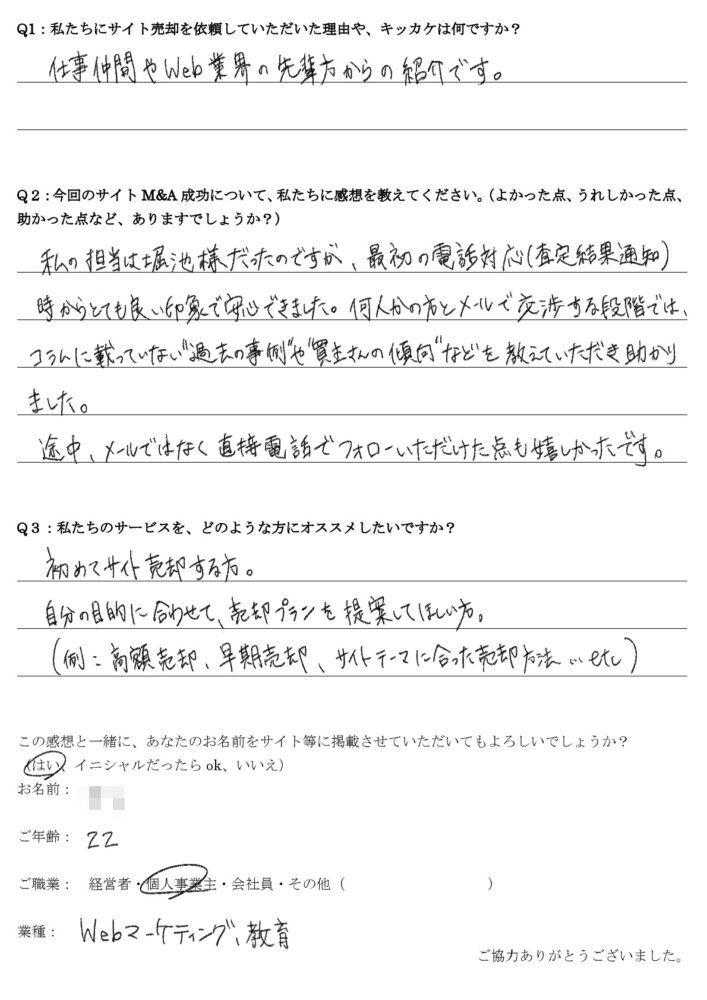 Q1：私たちにサイト売却を依頼していただいた理由や、キッカケは何ですか？
仕事仲間やWeb業界の先輩方からの紹介です。
Q2：今回のサイトM&A成功について、私たちに感想を教えてください。（よかった点、うれしかった点、
助かった点など、ありますでしょうか？）
私の担当は堀池様だったのですが、最初の電話対応(査定結果通知)
時からとても良い印象で安心できました。何人かの方とメールで交渉する段階では、
コラムに載っていない"過去の事例"や"買主さんの傾向"などを教えていただき助かり
ました。
途中、メールではなく直接電話でフォローいただけた点も嬉しかったです。
Q3：私たちのサービスを、どのような方にオススメしたいですか？
初めてサイト売却する方。
自分の目的に合わせて、売却プランを提案してほしい方。
(例：高額売却、早期売却、サイトテーマに合った売却方法…etc)
この感想と一緒に、あなたのお名前をサイト等に掲載させていただいてもよろしいでしょうか？
（はい、イニシャルだったらok、いいえ）
お名前：
ご年齢： 22
ご職業： 経営者・個人事業主・会社員・その他（ ）
業種： Webマーケティング、教育
ご協力ありがとうございました。